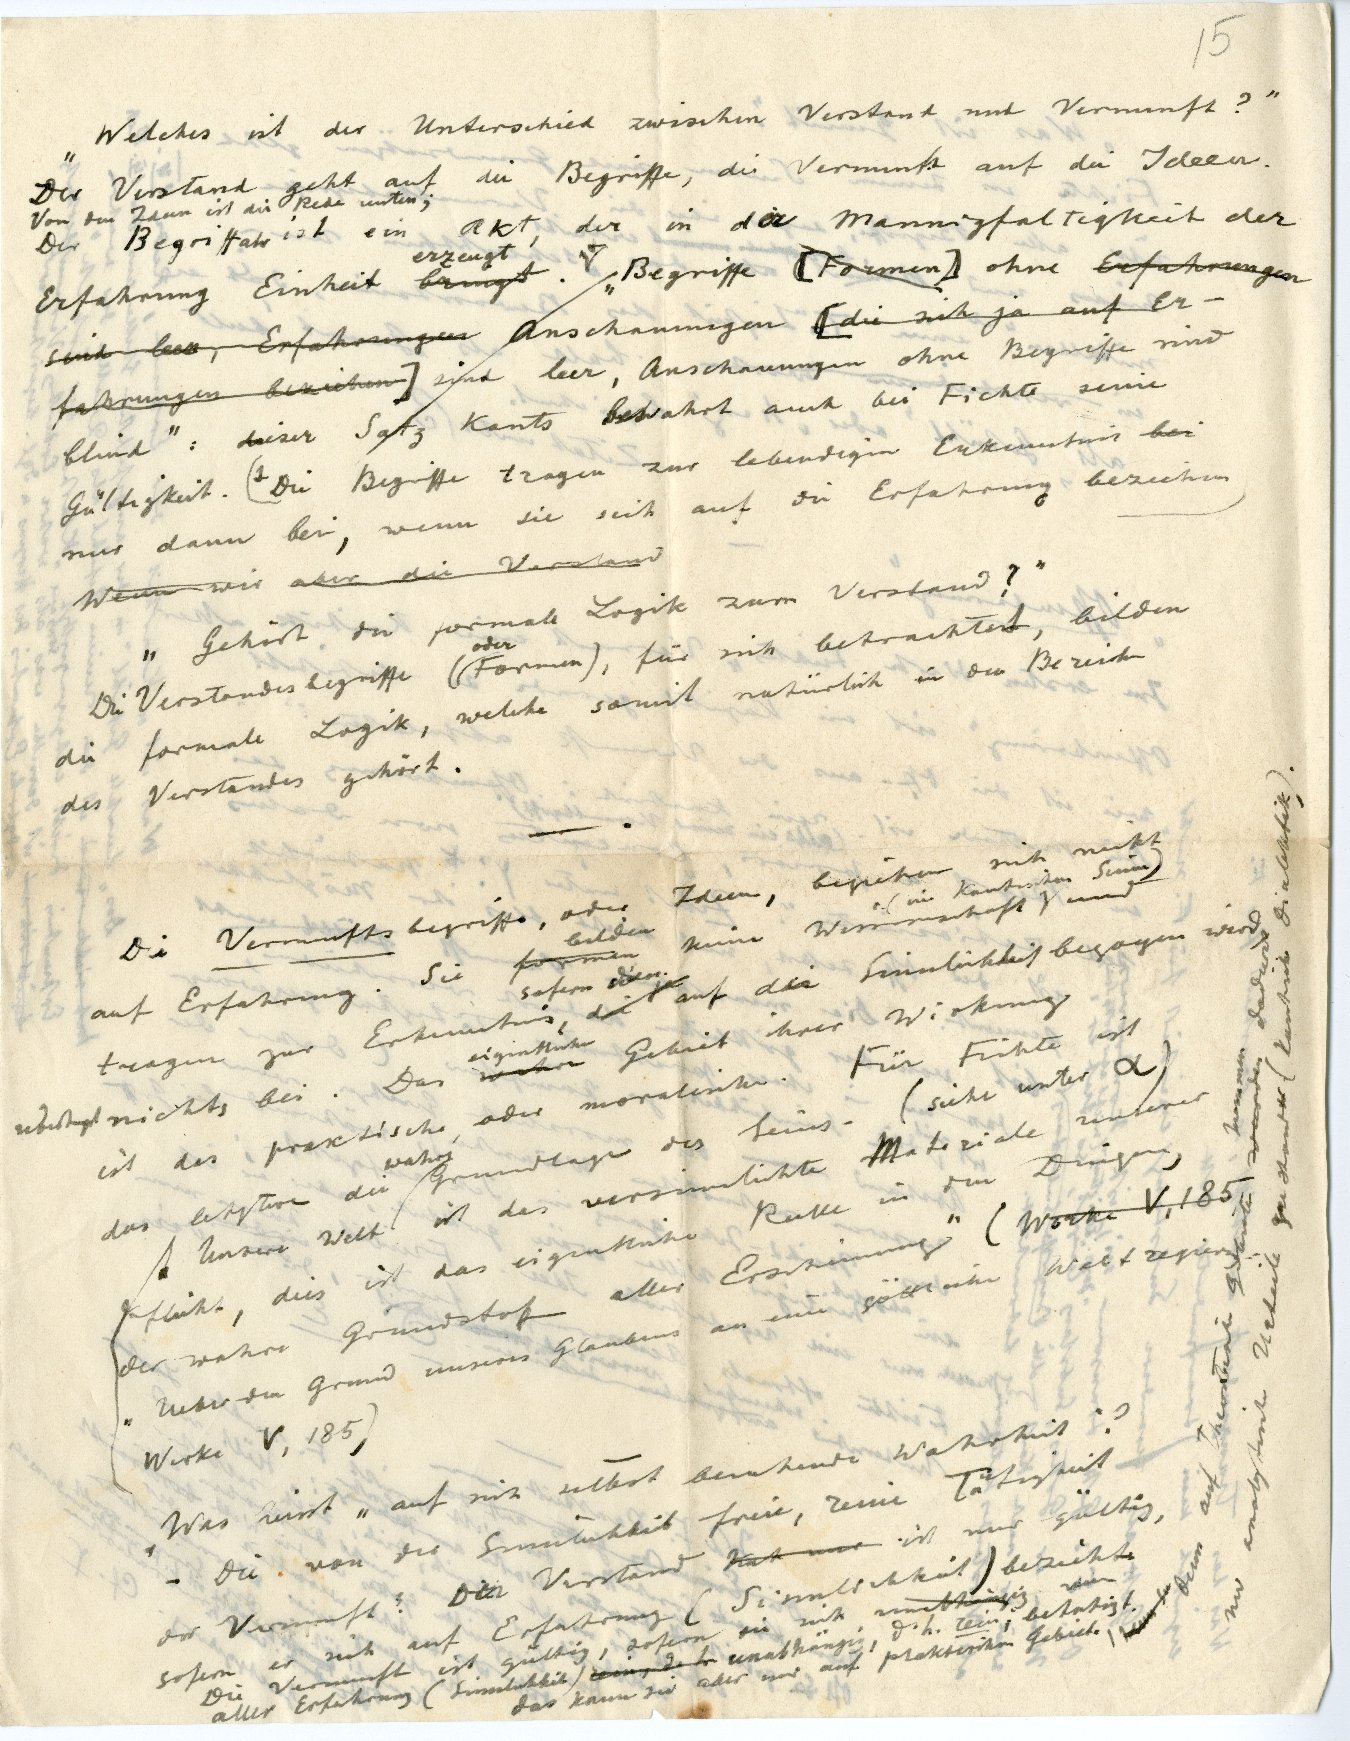 15
„Welches ist der Unterschied zwischen Verstand und Vernunft?"
Der Verstand geht auf die Begriffe, die Vernunft auf die Ideeen.
Von den Ideen ist die Rede unten;
Der Begriff aber ist ein Akt, der in die Mannigfaltigkeit der
erzeugt
Erfahrung Einheit bringt. „Begriffe [Formen] ohne Erfahrungen
sind leer, Erfahrungen Anschauungen [die sich ja auf Er-
fahrungen beziehen] sind leer, Anschauungen ohne Begriffe sind
blind": dieser Satz Kants bewahrt auch bei Fichte seine
Gültigkeit. (Die Begriffe tragen zur lebendigen Erkenntnis bei
nur dann bei, wenn sie sich auf die Erfahrung beziehen)
Wenn wir aber die Verstand
„Gehört die formale Logik zum Verstand?"
oder
Die Verstandesbegriffe (Formen), für sich betrachtet, bilden
die formale Logik, welche somit natürlich in den Bereich
des Verstandes gehört.
—.
Die Vernunftsbegriffe, oder Ideen, beziehen sich nicht
bilden
(im Kantischen Sinn)
auf Erfahrung. Sie formen keine Wissenschaft, und
sofern
tragen zur Erkenntnis, die auf die Sinnlichkeit bezogen wird,
eigentliche
überhaupt nichts bei. Das wahre Gebiet ihrer Wirkung
ist das praktische, oder moralische. Für Fichte ist
wahre
das letztere die Grundlage des Seins. (siehe unter α)
„Unsere Welt ist das versinnlichte Materiale unserer
Pflicht, dies ist das eigentliche Reelle in den Dingen,
der wahre Grundstoff aller Erscheinung" (Werke V, 185
„Ueber den Grund unseres Glaubens an eine göttliche Weltregierung
Werke V, 185)
„Was heisst „auf sich selbst beruhende Wahrheit"?
- Die von der Sinnlichkeit freie, reine Tätigkeit
der Vernunft. Der Verstand hat nur ist nur gültig,
sofern er sich auf Erfahrung (Sinnlichkeit) bezieht.
Die Vernunft ist gültig, sofern sie sich unabhängig von
aller Erfahrung (Sinnlichkeit) unabhängig, d.h. rein, betätigt.
Das kann sie aber nur auf praktischem Gebiet,
denn auf theoretischem Gebiete kommen dadurch
nur analytische Urteile zustande (Kantische Dialektik).